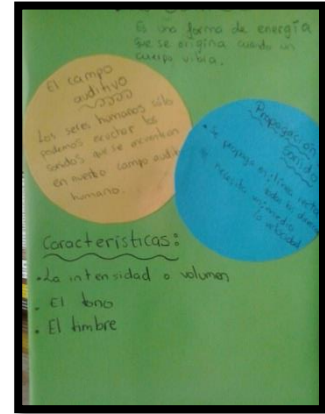 Es una forma de energía
que se origina cuando un
cuerpo vibra.
El campo
auditivo
Los seres humanos sólo
podemos escuchar los
sonidos que se encuentran
en nuestro campo audit
humano.
Propagación
Sonido
Se propaga en línea recta
necesita
la velocidad
Características:
•La intensidad o volumen
• El tono
• El timbre